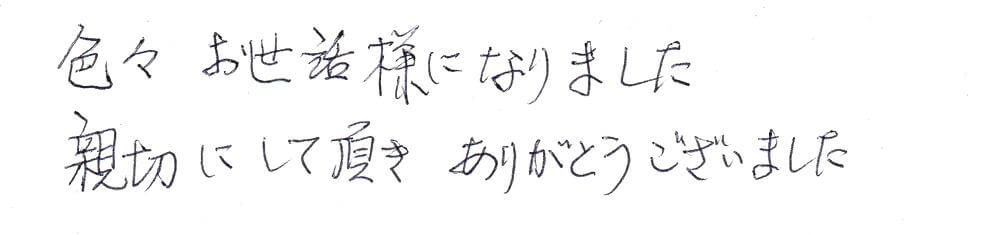 色々 お世話様になりました
親切にして頂き ありがとうございました